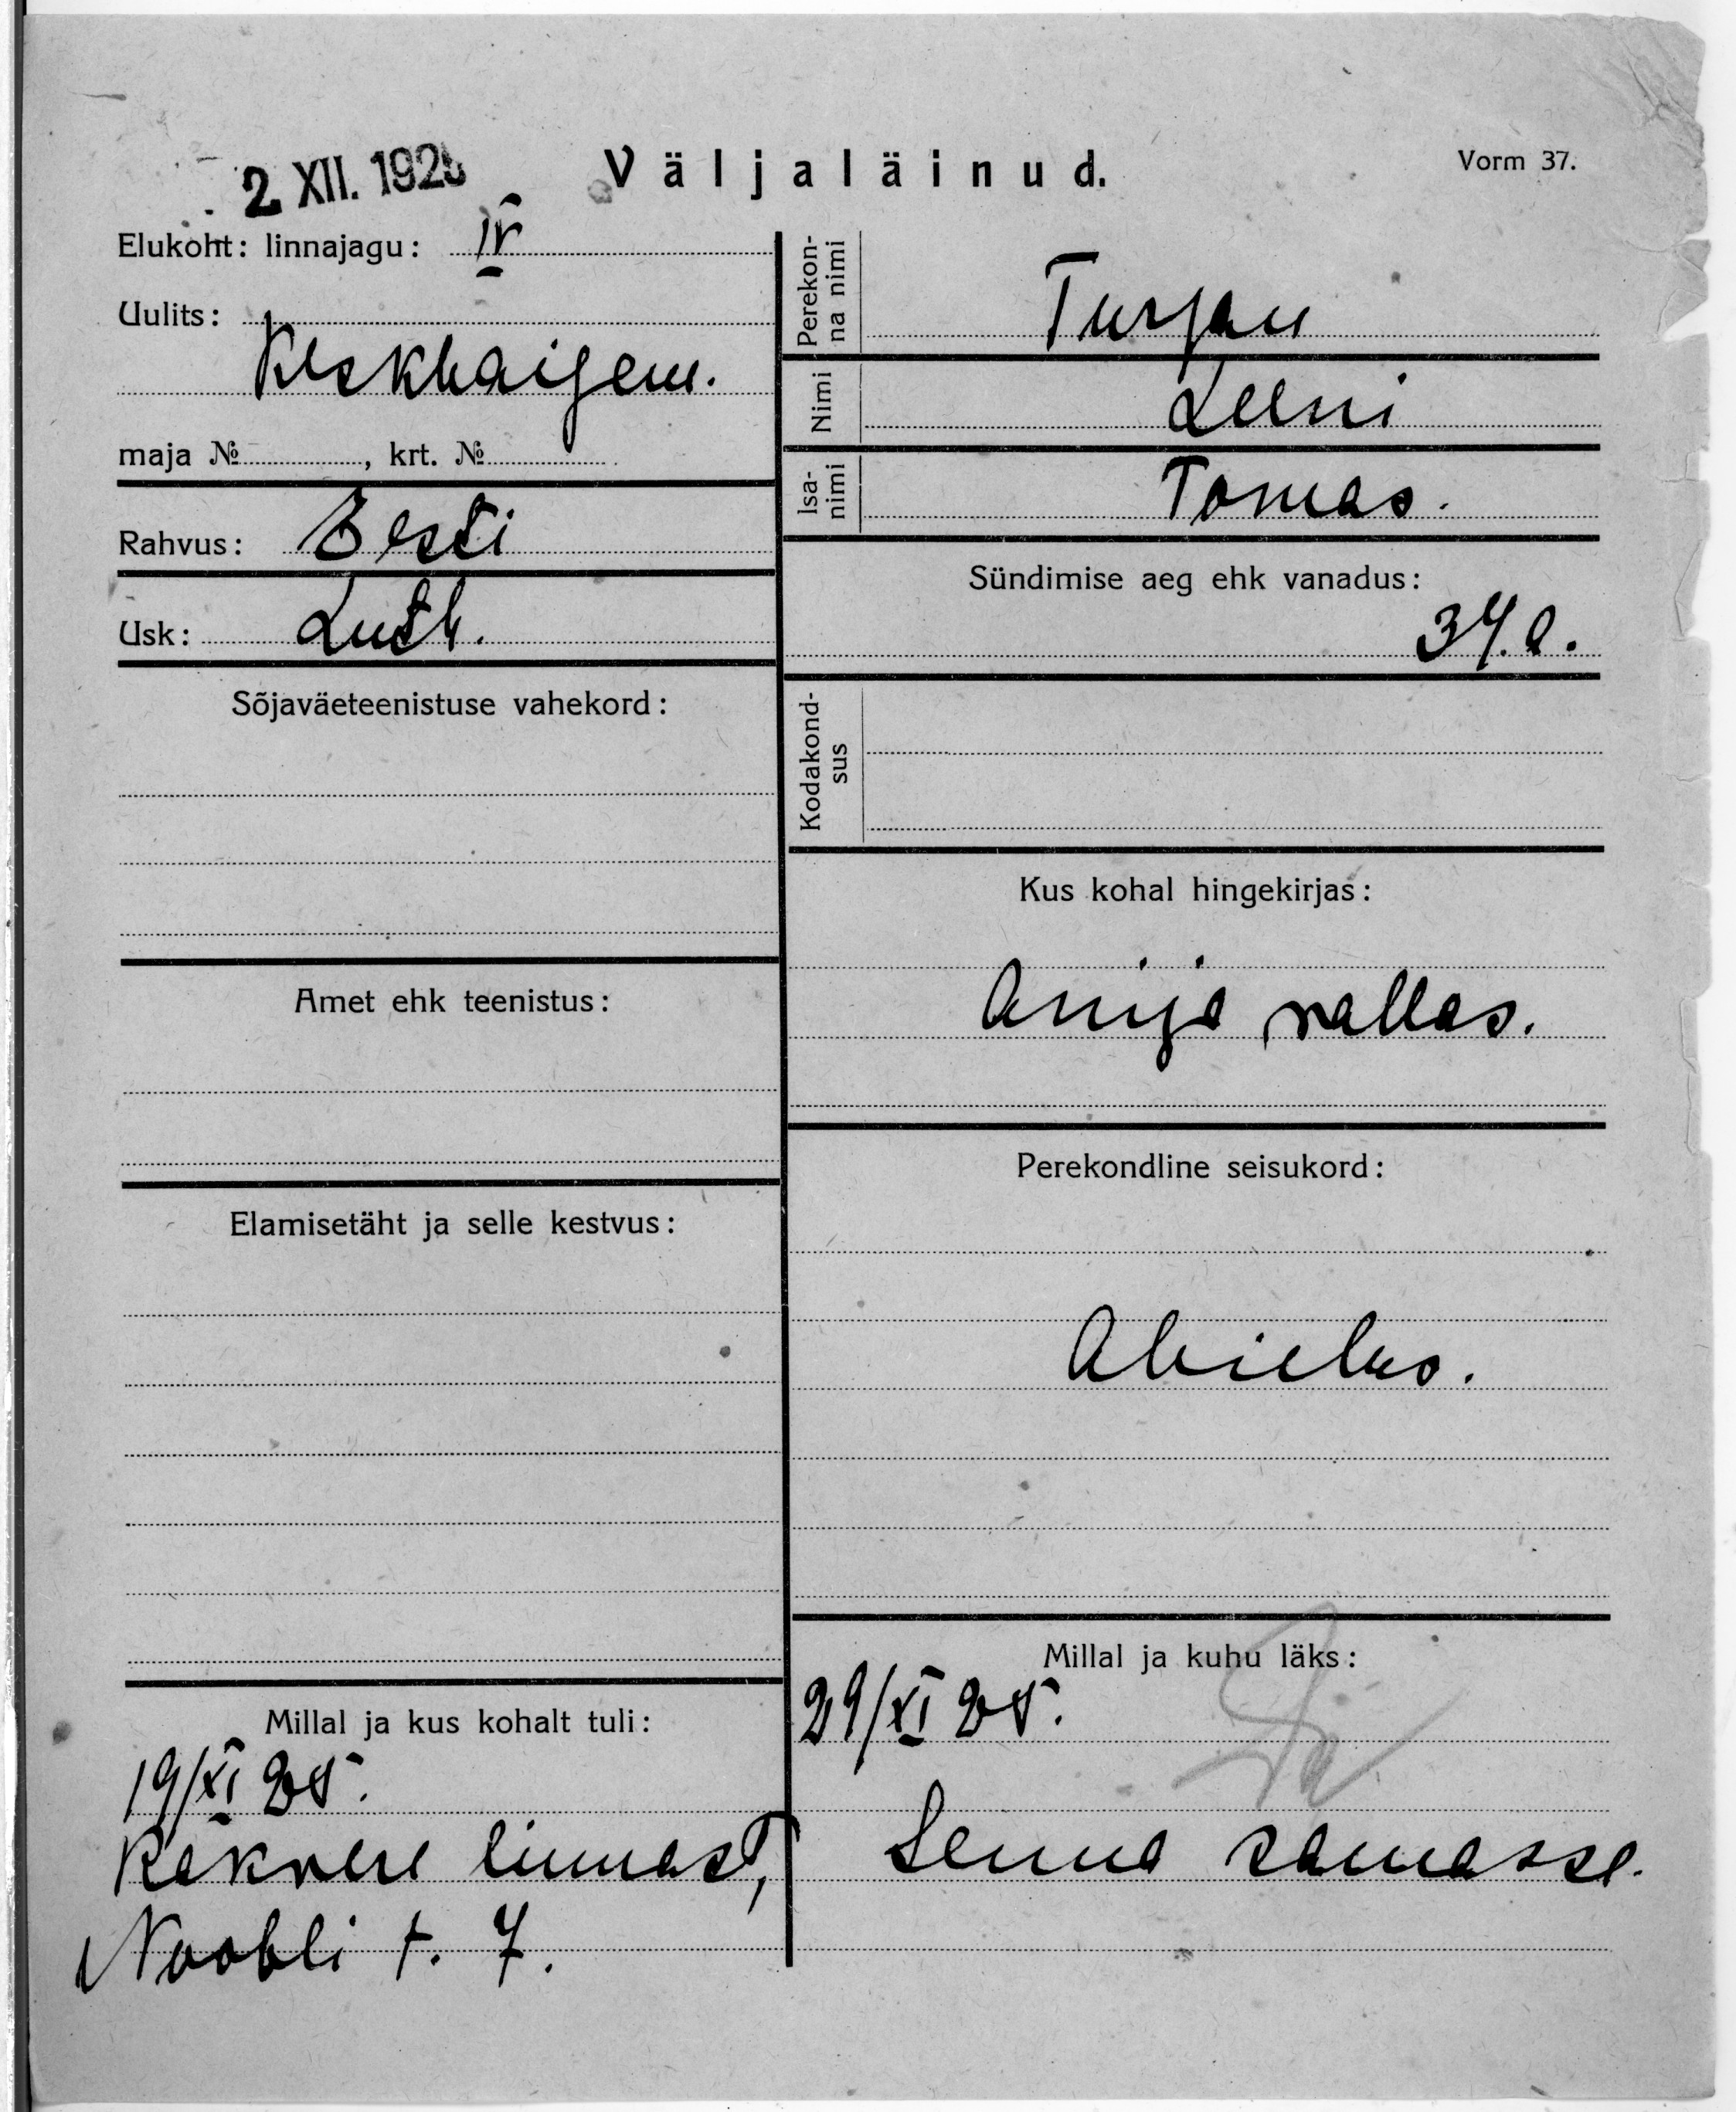 2 XII. 1925
Väljaläinud.
Vorm 37.
Elukoht: linnajagu: IV
Uulits:
Keskhaigem.
maja №, krt. №
Rahvus: Eesti
Usk: Luth.
Sõjaväeteenistuse vahekord:
Amet ehk teenistus:
Elamisetäht ja selle kestvus:
Millal ja kus kohalt tuli:
19/XI 25.
Rakvere linnast,
Noobli t. 7.
Perekonna nimi
Turjan
Nimi
Leeni
Isanimi
Tomas.
Sündimise aeg ehk vanadus:
34.a.
Kodakondsus
Kus kohal hingekirjas:
Anija vallas.
Perekondline seisukord:
Abielus.
Millal ja kuhu läks:
29/XI 25.
Senna samasse.